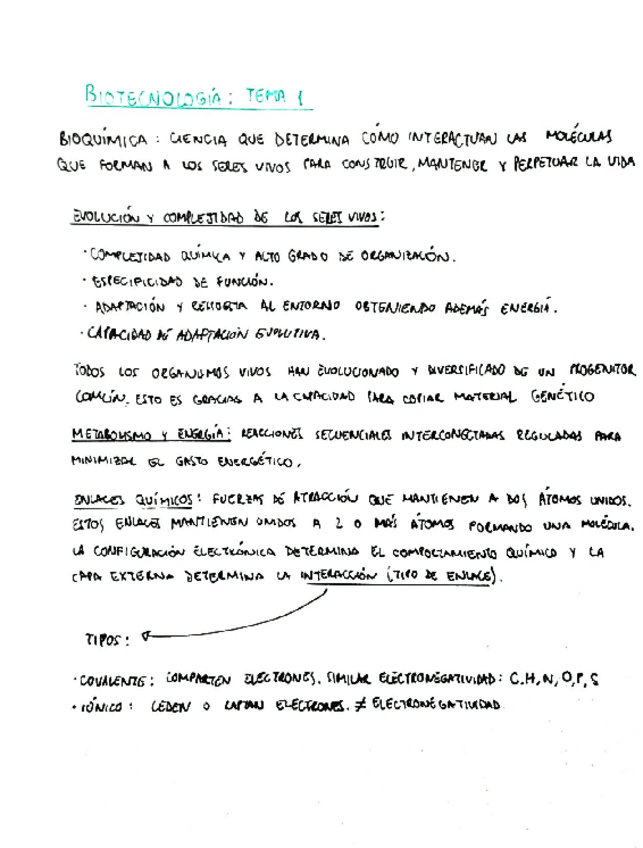 BIOTECNOLOGÍA: TEMA 1
BIOQUÍMICA: CIENCIA QUE DETERMINA CÓMO INTERACTUAN LAS MOLÉCULAS
QUE FORMAN A LOS SERES VIVOS PARA CONSTRUIR, MANTENER Y PERPETUAR LA VIDA
EVOLUCIÓN Y COMPLEJIDAD DE LOS SERES VIVOS:
· COMPLEJIDAD QUÍMICA Y ALTO GRADO DE ORGANIZACIÓN.
· ESPECIFICIDAD DE FUNCIÓN.
· ADAPTACIÓN Y RESPUESTA AL ENTORNO OBTENIENDO ADEMÁS ENERGÍA.
· CAPACIDAD DE ADAPTACIÓN EVOLUTIVA.
TODOS LOS ORGANISMOS VIVOS HAN EVOLUCIONADO Y DIVERSIFICADO DE UN PROGENITOR
COMÚN. ESTO ES GRACIAS A LA CAPACIDAD PARA COPIAR MATERIAL GENÉTICO
METABOLISMO Y ENERGÍA: REACCIONES SECUENCIALES INTERCONECTADAS REGULADAS PARA
MINIMIZAR EL GASTO ENERGÉTICO.
ENLACES QUÍMICOS: FUERZAS DE ATRACCIÓN QUE MANTIENEN A DOS ÁTOMOS UNIDOS.
ESTOS ENLACES MANTIENEN UNIDOS A 2 O MÁS ÁTOMOS FORMANDO UNA MOLÉCULA.
LA CONFIGURACIÓN ELECTRÓNICA DETERMINA EL COMPORTAMIENTO QUÍMICO Y LA
CAPA EXTERNA DETERMINA LA INTERACCIÓN (TIPO DE ENLACE).
TIPOS:
· COVALENTE: COMPARTEN ELECTRONES. SIMILAR ELECTRONEGATIVIDAD: C,H,N,O,P,S
· IÓNICO: CEDEN O CAPTAN ELECTRONES. ≠ ELECTRONEGATIVIDAD